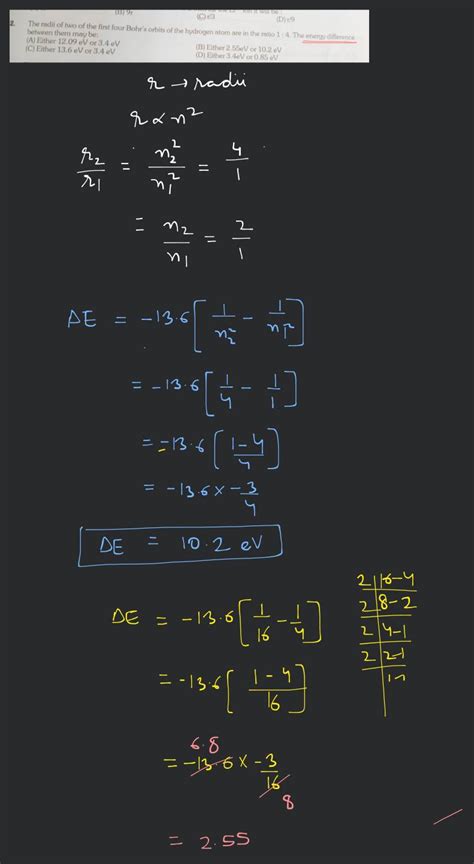 (B) 9r
(C) r/3
(D) r/9
2. The radii of two of the first four Bohr's orbits of the hydrogen atom are in the ratio 1 : 4. The energy difference
between them may be:
(A) Either 12.09 eV or 3.4 eV
(B) Either 2.55eV or 10.2 eV
(C) Either 13.6 eV or 3.4 eV
(D) Either 3.4eV or 0.85 eV
r → radii
r ∝ n²
r₂/r₁ = n₂²/n₁² = 4/1
= n₂/n₁ = 2/1
ΔE = -13.6 [1/n₂² - 1/n₁²]
= -13.6 [1/4 - 1/1]
= -13.6 [(1-4)/4]
= -13.6 × -3/4
ΔE = 10.2 eV
2 | 16-4
2 | 8-2
2 | 4-1
2 | 2-1
1-1
ΔE = -13.6 [1/16 - 1/4]
= -13.6 [(1-4)/16]
6.8
= -13.6 × -3/16
8
= 2.55